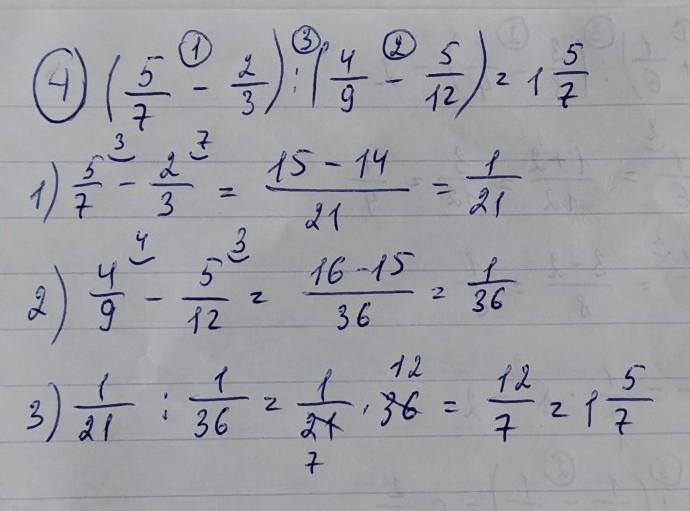 4) (5/7 - 2/3) : (4/9 - 5/12) = 1 5/7
1 3 2
1) 5/7 - 2/3 = (15 - 14)/21 = 1/21
3 7
2) 4/9 - 5/12 = (16 - 15)/36 = 1/36
4 3
3) 1/21 : 1/36 = 1/21 · 36 = 12/7 = 1 5/7
12
7